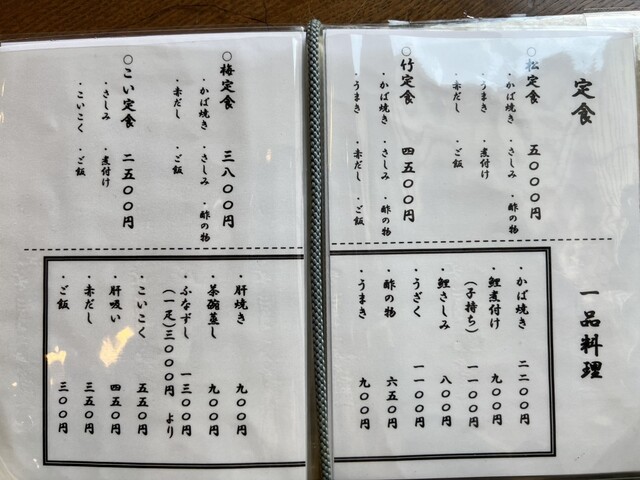 定食
○松定食 五〇〇〇円
・かば焼き ・さしみ ・酢の物
・うまき ・煮付け
・赤だし ・ご飯
○竹定食 四五〇〇円
・かば焼き ・さしみ ・酢の物
・うまき ・赤だし ・ご飯
○梅定食 三八〇〇円
・かば焼き ・さしみ ・酢の物
・赤だし ・ご飯
○こい定食 二五〇〇円
・さしみ ・煮付け
・こいこく ・ご飯
一品料理
・かば焼き 二二〇〇円
・鯉煮付け 九〇〇円
(子持ち) 一一〇〇円
・鯉さしみ 八〇〇円
・うざく 一一〇〇円
・酢の物 六五〇円
・うまき 九〇〇円
・肝焼き 九〇〇円
・茶碗蒸し 九〇〇円
・ふなずし 一三〇〇円
(一疋)三〇〇〇円 より
・こいこく 五五〇円
・肝吸い 四五〇円
・赤だし 三五〇円
・ご飯 三〇〇円